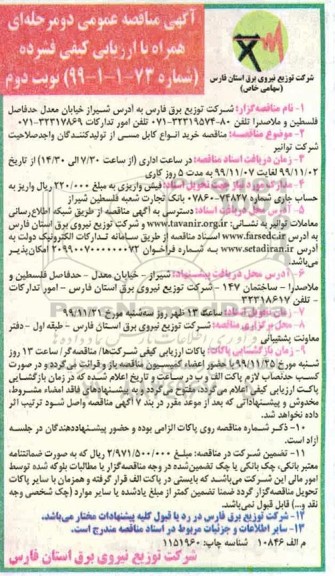 آگهی مناقصه عمومی دومرحله‌ای
همراه با ارزیابی کیفی فشرده
(شماره ۷۳-۱-۱-۹۹) نوبت دوم
شرکت توزیع نیروی برق استان فارس
(سهامی خاص)
۱- نام مناقصه‌گزار: شرکت توزیع برق فارس به ادرس شیراز خیابان معدل حدفاصل
فلسطین و ملاصدرا تلفن ۸۰-۳۲۳۱۹۵۷۴-۰۷۱ تلفن امور تدارکات ۳۲۳۱۷۸۶۹-۰۷۱
۲- موضوع مناقصه: مناقصه خرید انواع کابل مسی از تولیدکنندگان واجدصلاحیت
شرکت توانیر
۳- زمان دریافت اسناد مناقصه: در ساعت اداری (از ساعت ۷/۳۰ الی ۱۴/۳۰) از تاریخ
۹۹/۱۱/۰۲ لغایت ۹۹/۱۱/۰۷ به مدت ۵ روز کاری
۴- مدارک مورد نیاز جهت تحویل اسناد: فیش واریزی به مبلغ ۲۲۰/۰۰۰ ریال واریز به
حساب جاری شماره ۷۴۸۲۷-۰۷۸۶ بانک تجارت شعبه فلسطین شیراز
۵- محل دریافت اسناد: دسترسی به آگهی مناقصه از طریق شبکه اطلاع‌رسانی
معاملات توانیر به نشانی: www.tavanir.org.ir و شرکت توزیع برق استان فارس
آدرس www.farsedc.ir اسناد مناقصه از طریق سامانه تدارکات الکترونیک دولت به
آدرس www.setadiran.ir به شماره فراخوان امکان‌پذیر
می‌باشد.
۶- آدرس محل دریافت پیشنهاد: شیراز - خیابان معدل - حدفاصل فلسطین و
ملاصدرا - ساختمان ۱۴۷ - شرکت توزیع نیروی برق استان فارس - امور تدارکات
- تلفن ۳۲۳۱۸۶۱۷
۷- زمان تحویل اسناد: ساعت ۱۳ ظهر روز سه‌شنبه مورخ ۹۹/۱۱/۲۱
۸- محل برگزاری مناقصه: شرکت توزیع نیروی برق استان فارس - طبقه اول - دفتر
معاونت پشتیبانی
۹- زمان بازگشایی پاکات: پاکات ارزیابی کیفی شرکت‌ها/ مناقصه‌گر/ ساعت ۱۳ روز
شنبه مورخ ۹۹/۱۱/۲۵ با حضور اعضاء کمیسیون مناقصه باز و قرائت می‌گردد و در صورت
کسب حدنصاب لازم پاکت الف و ب در ساعت و تاریخ اعلام شده که در زمان بازگشایی
پاکت ارزیابی کیفی اعلام می‌گردد، مفتوح می‌گردد و به پیشنهادهای فاقد امضاء مشروط،
مخدوش و پیشنهاداتی که بعد از موعد مقرر در بند ۷ آگهی مناقصه وصول شود ترتیب اثر
داده نخواهد شد.
۱۰- ذکر شماره مناقصه روی پاکات الزامی بوده و حضور پیشنهاددهندگان در جلسه
آزاد است.
۱۱- تضمین شرکت در مناقصه: مبلغ ۲/۹۷۱/۵۰۰/۰۰۰ ریال که به صورت ضمانتنامه
معتبر بانکی، چک بانکی یا چک تضمین‌شده در وجه مناقصه‌گزار یا مطالبات بلوکه شده توسط
امور مالی این شرکت می‌باشد که بایستی در پاکت الف قرار گرفته و همزمان با سایر پاکات
تحویل مناقصه‌گزار گردد ضمنا تضمین کمتر از مبلغ یادشده یا سایر موارد (چک شخصی وجه
نقد و...) قابل قبول نمی‌باشد.
۱۲- شرکت توزیع برق فارس در رد یا قبول کلیه پیشنهادات مختار می‌باشد.
۱۳- سایر اطلاعات و جزئیات مربوط در اسناد مناقصه مندرج است.
م الف ۱۰۸۴۶ شناسه چاپ: ۱۱۵۱۹۶۰
شرکت توزیع نیروی برق استان فارس